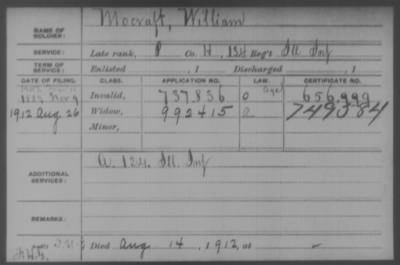 NAME OF SOLDIER: Mocraft, William
SERVICE: Late rank, P Co. H, 134 Reg't Ill Inf
TERM OF SERVICE: Enlisted , 1 Discharged , 1
DATE OF FILING. CLASS. APPLICATION NO. LAW. CERTIFICATE NO.
Invalid, 737.836 0 656.999
1912 Aug 26 Widow, 992415 749384
Minor,
ADDITIONAL SERVICES: A. 124. Ill. Inf
REMARKS:
Died Aug 14, 1912, at —